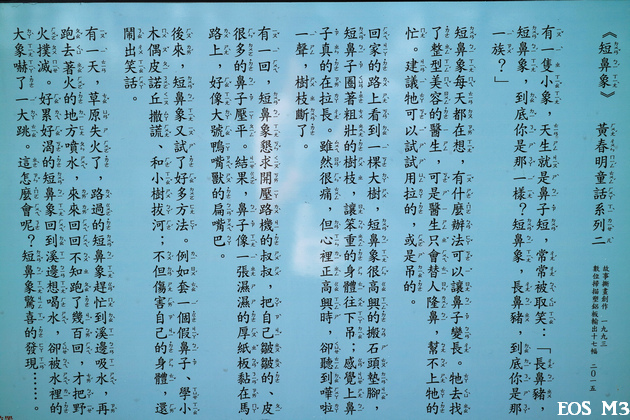 《短鼻象》 黃春明童話系列二
故事撕畫創作 一九九三
數位掃描塑鋁板輸出十七幅 二〇一五
有一隻小象，天生就是鼻子短，常常被取笑：「長鼻豬，
短鼻象，到底你是那一樣？短鼻象，長鼻豬，到底你是那
一族？」
短鼻象每天都在想，有什麼辦法可以讓鼻子變長。牠去找
了整型美容的醫生，可是醫生只會替人隆鼻，幫不上牠的
忙。建議牠可以試試用拉的，或是吊的。
回家的路上看到一棵大樹，短鼻象很高興的搬石頭墊腳，
短鼻子圈著粗壯的樹枝，讓笨重的身體往下吊，感覺上鼻
子真的在拉長。雖然很痛，但心裡正高興時，卻聽到嘩啦
一聲，樹枝斷了。
有一回，短鼻象懇求開壓路機的叔叔，把自己皺皺的、皮
很多的鼻子壓平。結果，鼻子像一張濕濕的厚紙板黏在馬
路上，好像大號鴨嘴獸的扁嘴巴。
後來，短鼻象又試了好多方法。例如套一個假鼻子、學小
木偶皮諾丘撒謊、和小樹拔河；不但傷害自己的身體，還
鬧出笑話。
有一天，草原失火了，路過的短鼻象趕忙到溪邊吸水，再
跑去著火的地方噴水，來來回回不知跑了幾百回，才把野
火撲滅。好累好渴的短鼻象回到溪邊想喝水，卻被水裡的
大象嚇了一大跳。這怎麼會呢？短鼻象驚喜的發現……
EOS M3